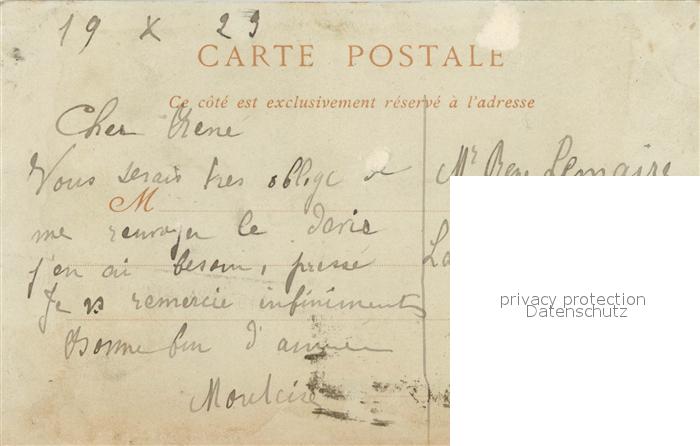 19 X 23
CARTE POSTALE
Ce côté est exclusivement réservé à l'adresse
Cher René
Vous serais tres oblige de
Mr Rene Lemaire
M
me renvoyer le devis
j'en ai besoin, pressé
La
Je vs remercie infiniments
Bonne fin d'année
privacy protection
Datenschutz